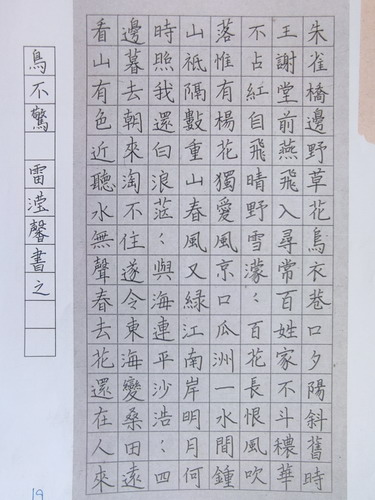 朱雀橋邊野草花烏衣巷口夕陽斜舊時
王謝堂前燕飛入尋常百姓家不斗穠華
不占紅自飛晴野雪濛〻百花長恨風吹
落惟有楊花獨愛風京口瓜洲一水間鍾
山祇隔數重山春風又綠江南岸明月何
時照我還白浪茫〻與海連平沙浩〻四
邊暮去朝來淘不住遂令東海變桑田遠
看山有色近聽水無聲春去花還在人來
鳥不驚 雷滢馨書之
19